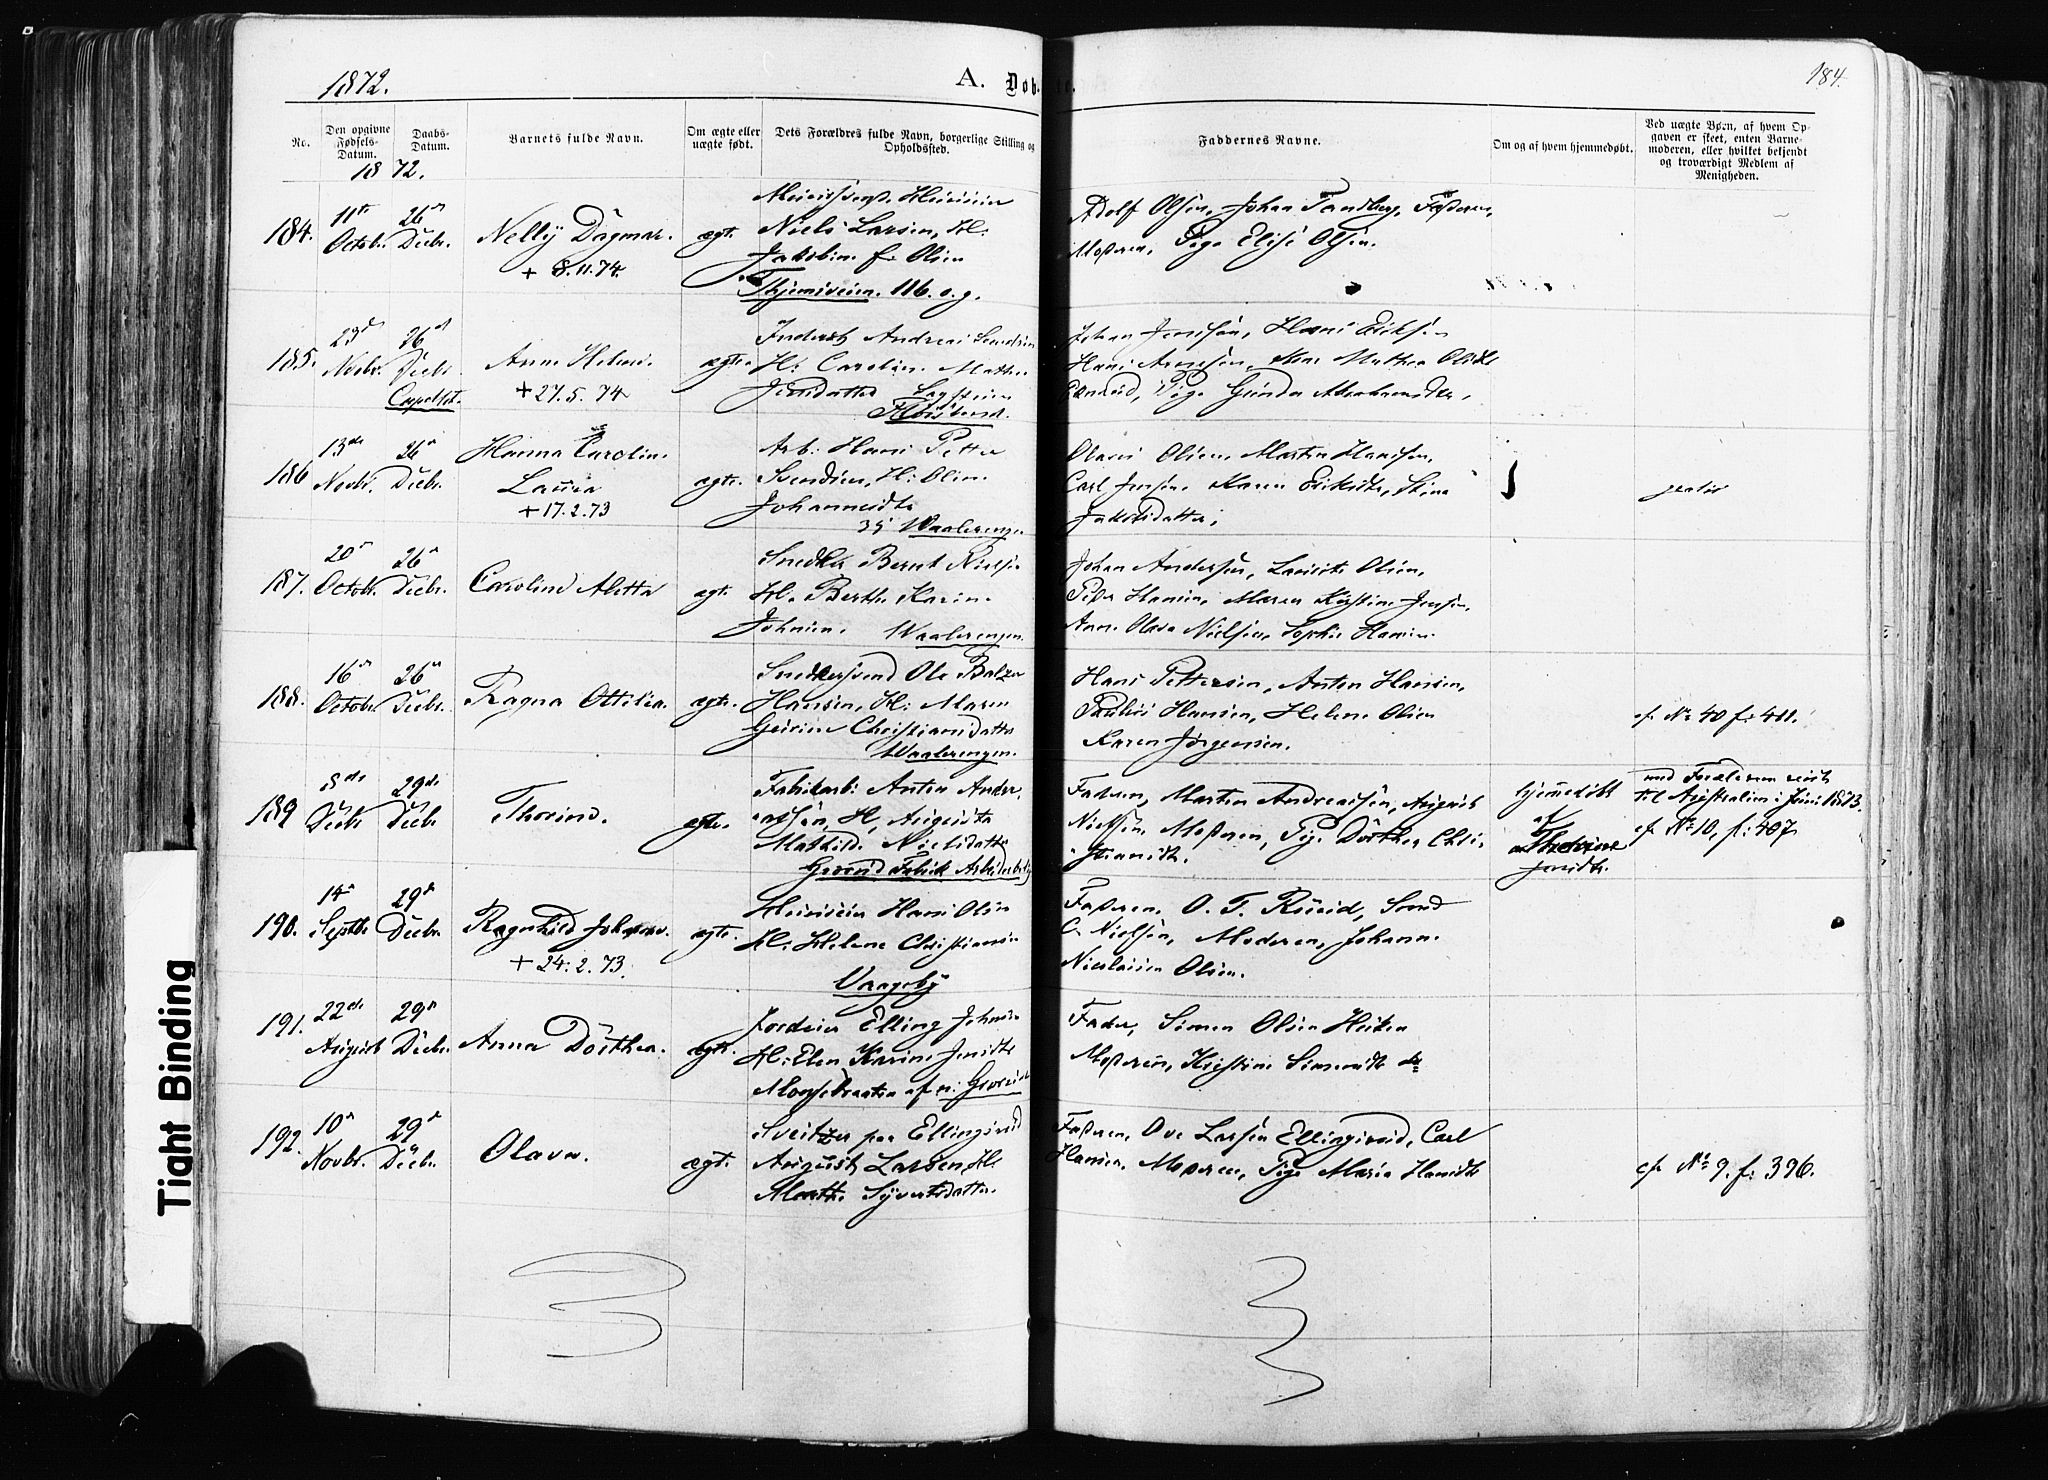 1872.
A. Døb
184.
No.
Den opgivne Fødsels-Datum.
Daabs-Datum.
Barnets fulde Navn.
Om ægte eller uægte født.
Dets Forældres fulde Navn, borgerlige Stilling og Opholdssted.
Faddernes Navne.
Om og af hvem hjemmedøbt.
Ved uægte Børn, af hvem Op-
gaven er skeet, enten Barne-
moderen, eller hvilket bekjendt
og troværdigt Medlem af
Menigheden.
1872.
184. 11te Octobr. 26de Decbr. Nelly Dagmar. ægt.
+ 8.11.74.
Niels Larsen, H:
f. Olsen
116. o.g.
Adolf Olsen, Johan Tandberg, Faderen,
Moderen, Pige Elise Olsen.
185. 23d Novbr. 26d Decbr. ægte.
Capellet.
+ 27.5.74
Inderst Andreas
H: Caroline Mathe
Jensdatter
Johan Jensen, Hans Eriksen
Pige Gunda
186 13de Novbr. 26 Decbr. Hanna Carolin.
Laura ægte.
+ 17.2.73
Arb: Hans Petter
Svendsen, H: Olin.
Johannesdtr
35 Waalerengen
Olaus Olsen, Martin Hansen,
Carl Jensen, Karen Eriksdtr, Stina
Jakobsdatter,
gratis
187. 20 Octobr. 26 Decbr. Caroline Aletta ægt.
Snedker Bernt Nielsen
H. Berthe Karin.
Johnsen. Waalerengen.
Johan Andersen, Lauritz Olsen,
Peder Hansen, Maren Kirstine Jensen,
Anne Olava Nielsen, Sophie Hansen.
188. 16 Octobr. 26 Decbr. Ragna Ottilia. ægte.
Snedkersvend Ole Balzer
Hansen, H: Maren
Christiansdatter
Waalerengen.
Hans Pettersen, Anton Hansen,
Hansen, Helene Olsen
Karen Jørgensen.
cf. No 40 f: 411.
189 8de Decbr 29de Decbr Thorine. ægte.
Fabrikarb: Anton Andre-
assen, H, Augusta
Mathilde Nielsdatter
Faderen, Martin Andreassen, August
Nielsen, Moderen, Pige Dorthea Chri-
stiansdtr.
hjemmedøbt
af
Thorine
Jensdtr.
med Forældrene reist
til Australien i Juni 1873.
cf No 10, f: 407
190. 14 Septbr. 29d Decbr. Ragnhild Johanne. ægte.
+ 24.2.73.
Huuseier Hans Olsen
H: Helene Christiansen
Faderen, O. T. Svend
C. Nielsen, Moderen, Johann.
Nicolaisen Olsen.
191. 22de August 29d Decbr. Anna Dorthea. ægte.
Jordeier Elling Johnsen
H: Elen Karine Jensdtr
Fader, Simen Olsen
Moderen, Kristine Simensdtr do
192. 10 Novbr. 29d Decbr. Olava. ægt.
Sveitzer paa Ellingsrud
August Larsen, H:
Marthe Syvertsdatter.
Faderen, Ove Larsen Ellingsrud, Carl
Hansen, Moderen, Pige Maria Hansdtr
cf. No 9. f: 396.
Tight Binding